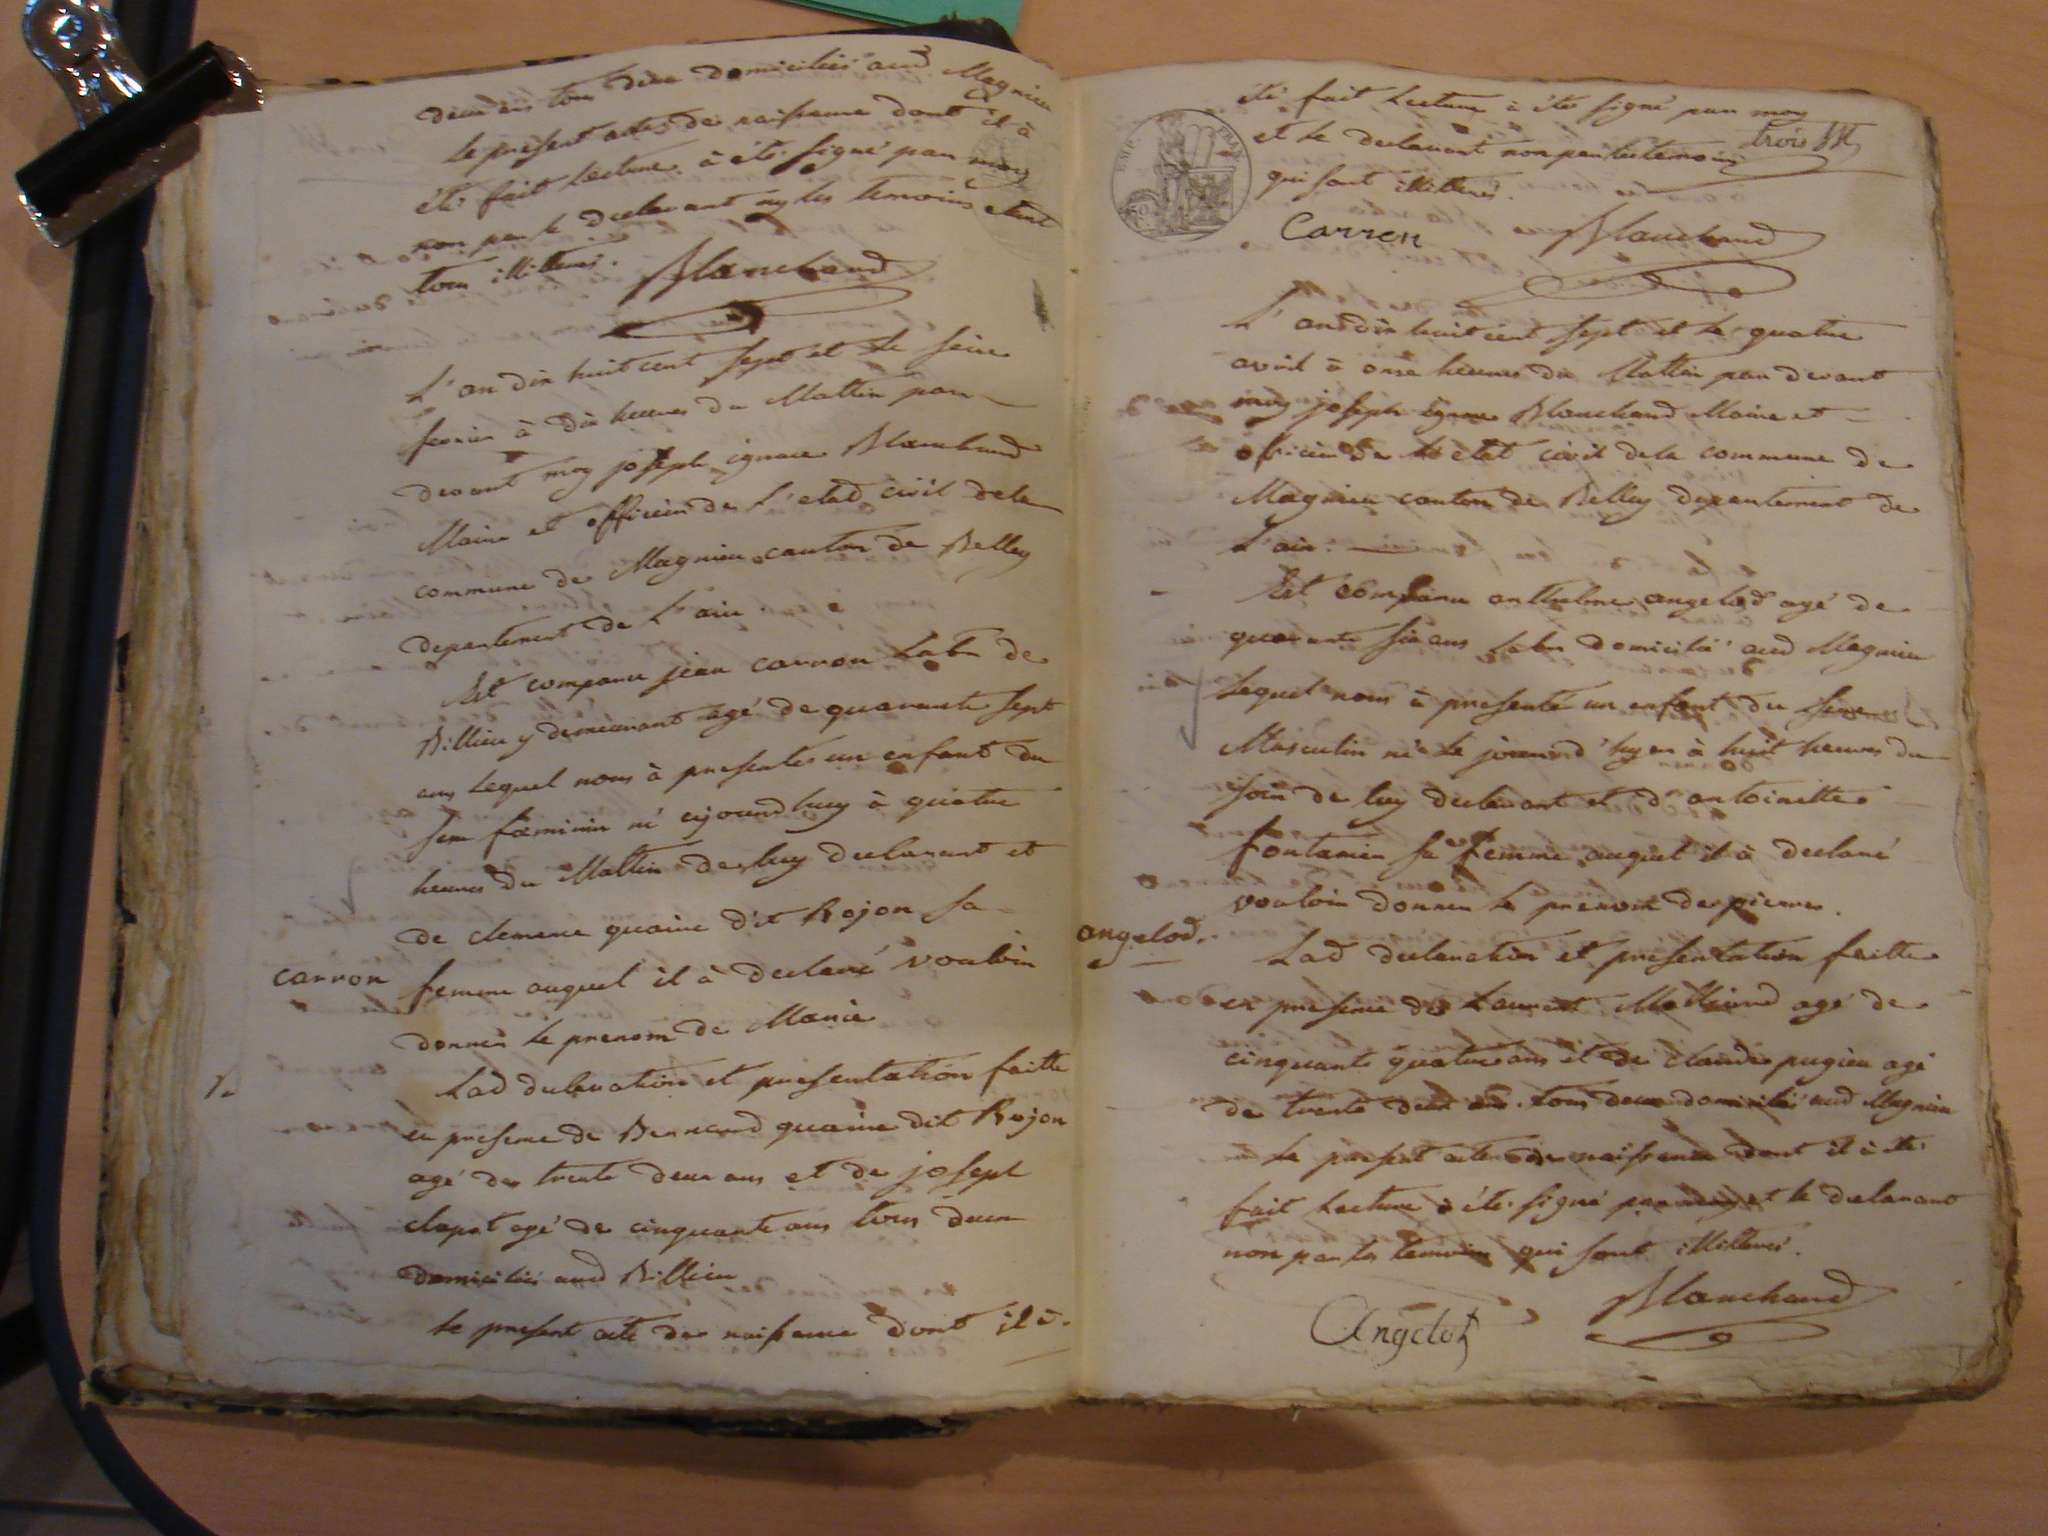 deux ans tous deux domiciliés aud Magnieu
le present acte de naissance dont il à
été fait lecture à été signé par moy
non par le declarant ny les temoins etant
tous illitterés.
Blanchard
L'an dix huit cent sept et le seize
fevrier à dix heures du Mattin par
devant moy joseph ignace Blanchard
Maire et officier de L'etat civil dela
commune de Magnieu canton de Belley
departement de L'ain
Est comparu jean carron Labr de
Billieu y demeurant agé de quarante sept
ans Lequel nous à presentés un enfant du
sexe fæminin né cejourd huy à quatre
heures du Mattin de luy declarant et
de clemence quaine dit Rojon sa
carron
femme auquel il à declaré vouloir
donner le prenom de Marie
Lad declaration et presentation faitte
en presence de Bernard quaine dit Rojon
agé de trente deux ans et de joseph
clapot agé de cinquante ans tous deux
domiciliés aud Billieu
Le present acte de naissance dont il à
été fait Lecture à été signé par moy
trois
et le declarant non par les temoins
qui sont illitterés.
EMP. FRAN.
50
Carren
Blanchard
L'an dix huit cent sept et le quatre
avril à onze heures du Mattin par devant
moy joseph ignace Blanchard Maire et
officier de L'etat civil dela commune de
Magnieu canton de Belley departement de
L'ain.
Est comparu anthelme angelod agé de
quarante six ans Labr domicilié aud Magnieu
Lequel nous à presenté un enfant du sexe
Masculin né le jourd'huy à huit heures du
soir de luy declarant et d'antoinette
fontanien sa femme auquel il à declaré
vouloir donner le prenom de pierre.
angelod.
Lad declaration et presentation faitte
en presence de Laurent Mollard agé de
cinquante quatre ans et de claude pugieu agé
de trente deux ans tous deux domiciliés aud Magnieu
Le present acte de naissance dont il à été
fait Lecture à été signé par moy et le declarant
non par les temoins qui sont illitterés.
Blanchard
Angelot